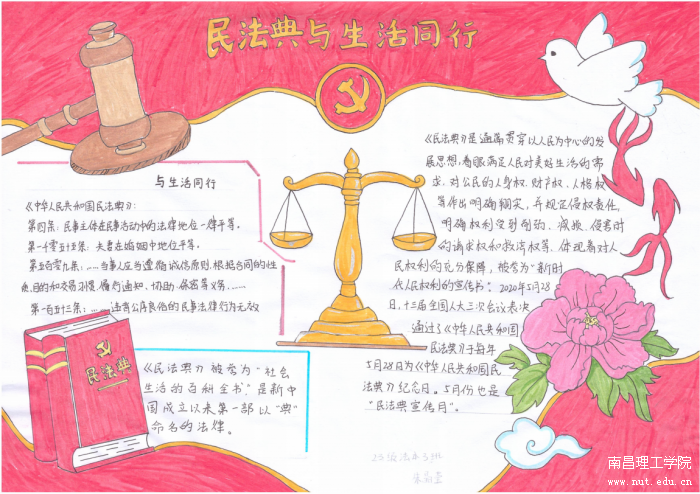 民法典与生活同行
与生活同行
《中华人民共和国民法典》:
第四条：民事主体在民事活动中的法律地位一律平等。
第一千零五十五条：夫妻在婚姻中地位平等。
第五百零九条：……当事人应当遵循诚信原则,根据合同的性
质、目的和交易习惯履行通知、协助、保密等义务……
第一百五十三条：……违背公序良俗的民事法律行为无效
民法典
《民法典》被誉为“社会
生活的百科全书”,是新中
国成立以来第一部以“典”
命名的法律。
《民法典》是通篇贯穿以人民为中心的发
展思想,着眼满足人民对美好生活的需
求,对公民的人身权、财产权、人格权
等作出明确翔实,并规定侵权责任,
明确权利受到削弱、减损、侵害时
的请求权和救济权等,体现着对人
民权利的充分保障,被誉为“新时
代人民权利的宣传书”。2020年5月28
日,十三届全国人大三次会议表决
通过了《中华人民共和国
民法典》于每年
5月28日为《中华人民共和国民
法典》纪念日。5月份也是
“民法典宣传月”。
南昌理工学院
www.nut.edu.cn